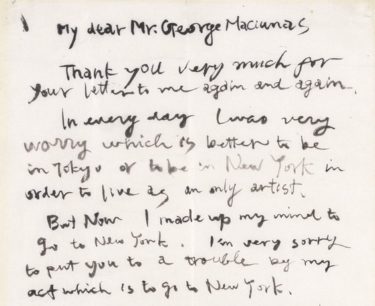 My dear Mr. George Maciunas
Thank you very much for
your letter to me again and again.
In every day I was very
worry which is better to be
in Tokyo or to be in New York in
order to live as an only artist.
But Now I made up my mind to
go to New York. I'm very sorry
to put you to a trouble by my
act which is to go to New York.